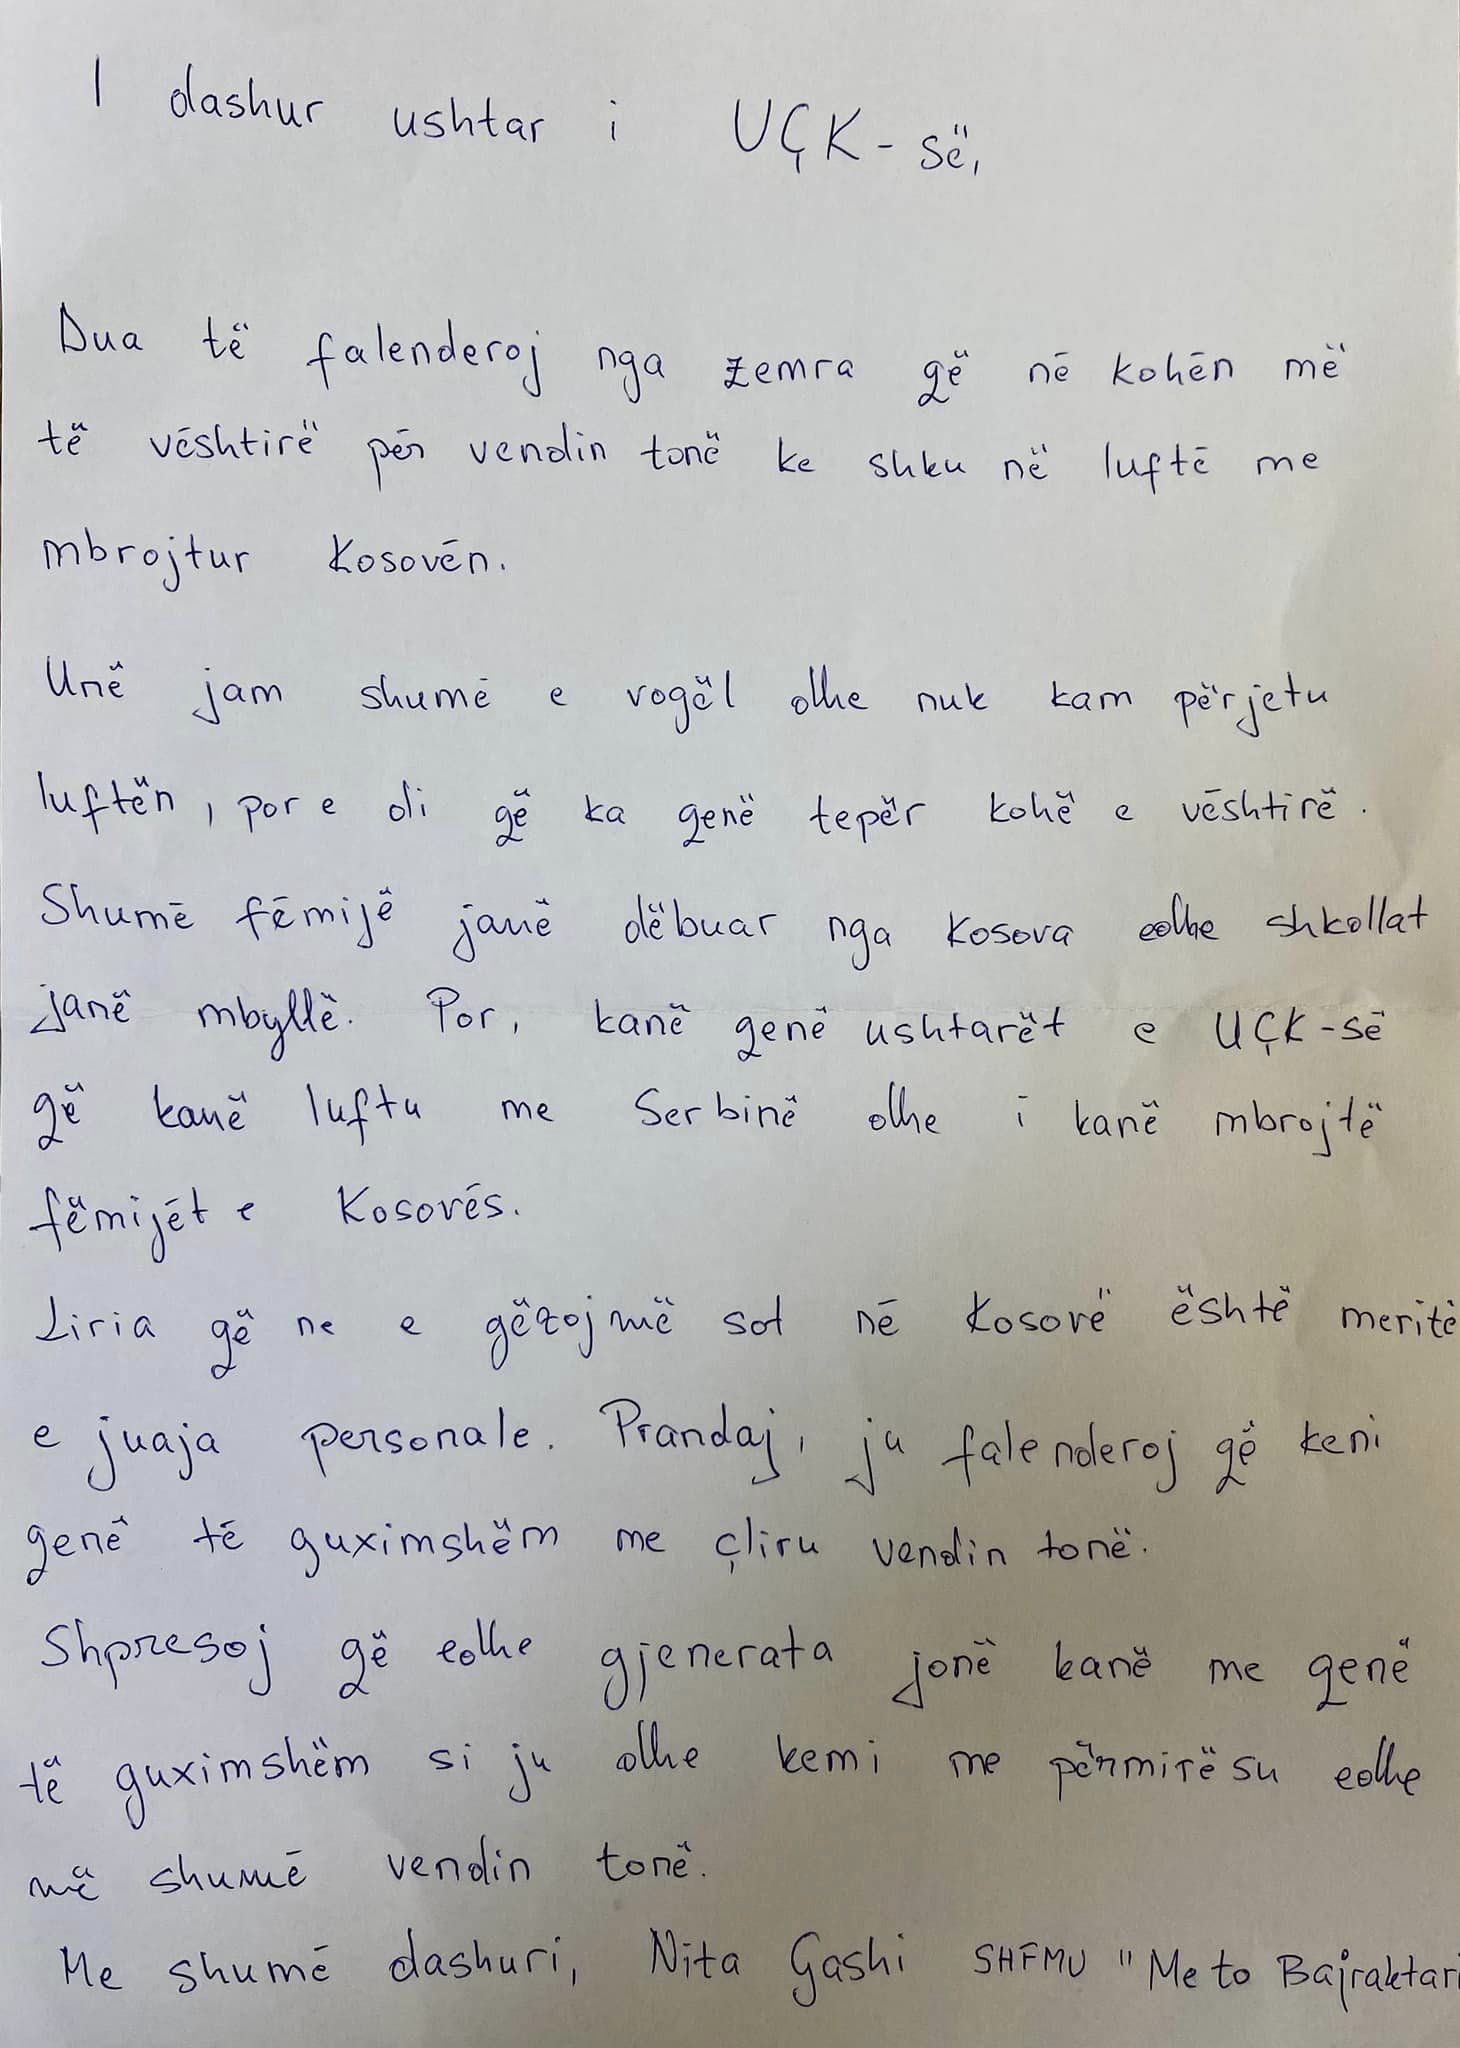 I dashur ushtar i UÇK-së,
Dua të falenderoj nga zemra që në kohën më
të vështirë për vendin tonë ke shku në luftë me
mbrojtur Kosovën.
Unë jam shumë e vogël dhe nuk kam përjetu
luftën, por e di që ka qenë tepër kohë e vështirë.
Shumë fëmijë janë dëbuar nga Kosova edhe shkollat
janë mbyllë. Por, kanë qenë ushtarët e UÇK-së
që kanë luftu me Serbinë dhe i kanë mbrojtë
fëmijët e Kosovës.
Liria që ne e gëzojmë sot në Kosovë është meritë
e juaja personale. Prandaj, ju falenderoj që keni
qenë të guximshëm me çliru vendin tonë.
Shpresoj që edhe gjenerata jonë kanë me qenë
të guximshëm si ju dhe kemi me përmirësu edhe
më shumë vendin tonë.
Me shumë dashuri, Nita Gashi SHFMU "Meto Bajraktari